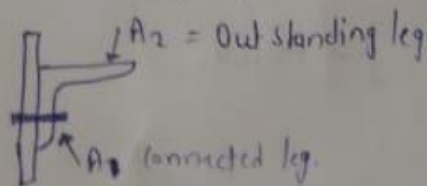 A2 = Out standing leg
A1 connected leg.